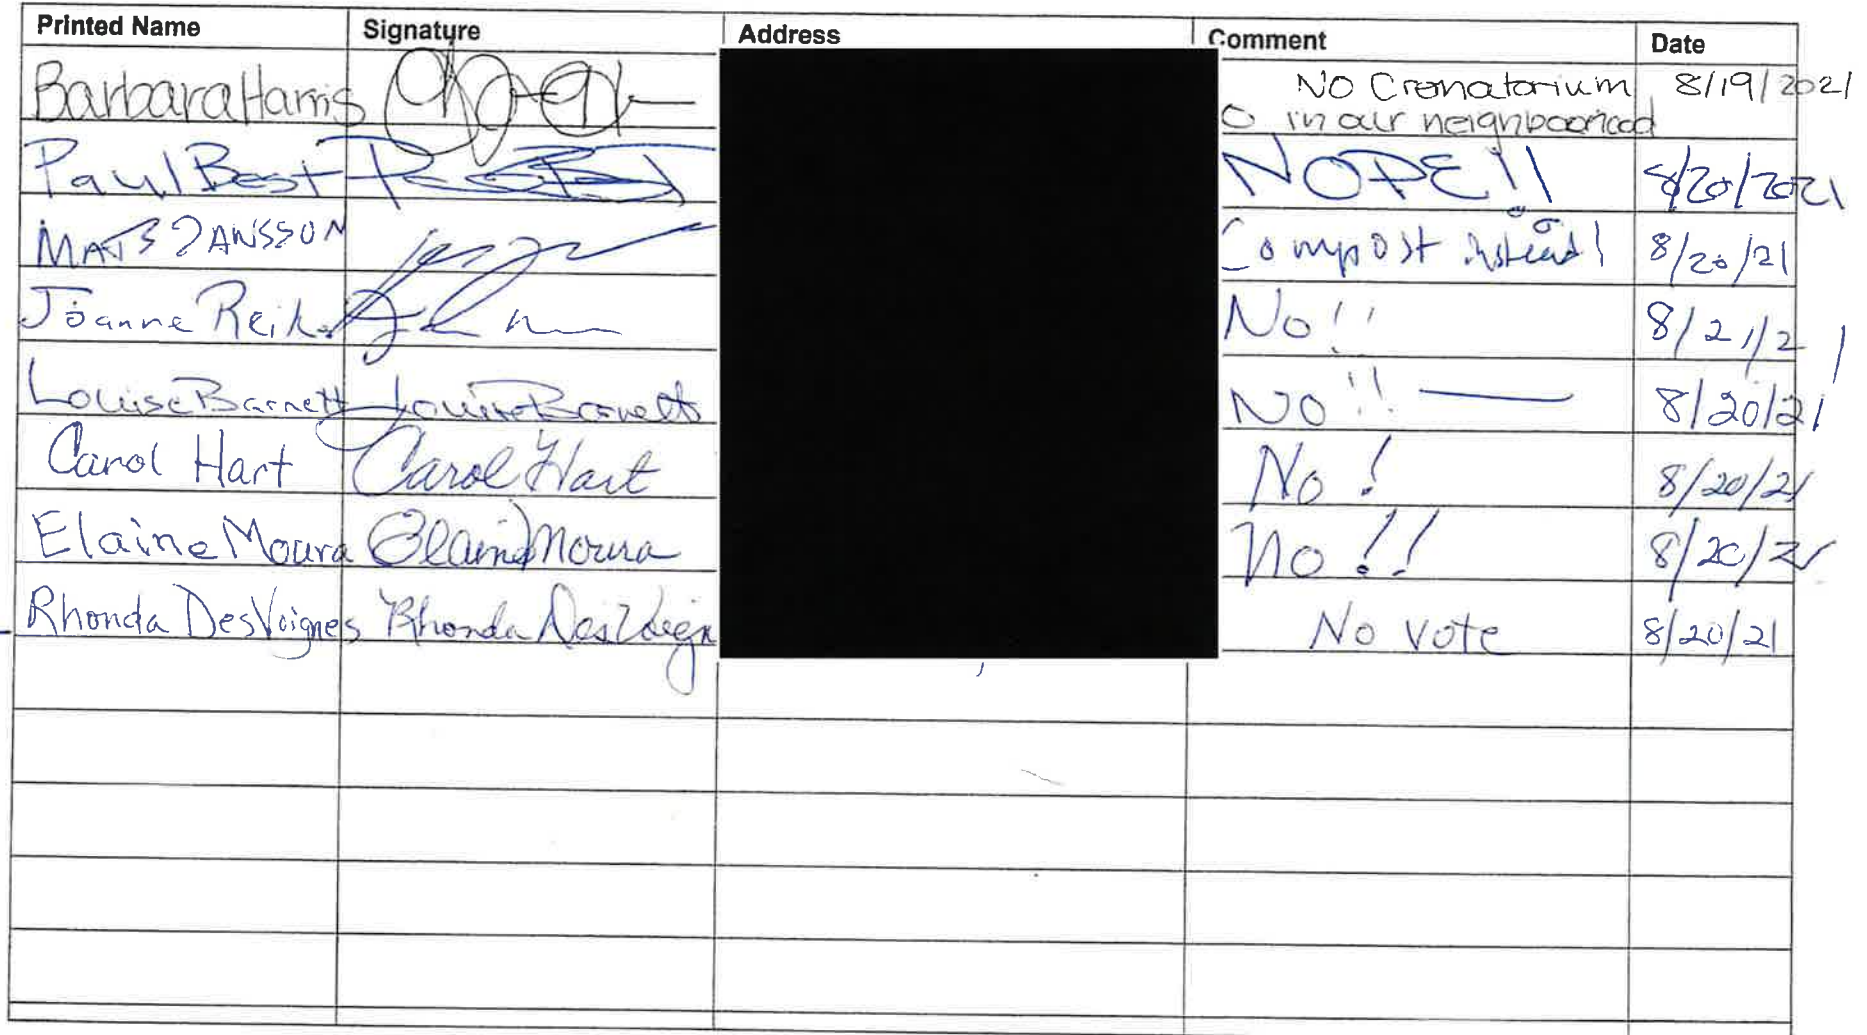 Printed Name Signature Address Comment Date
Barbara Harris No Crematorium 8/19/2021
in our neighboorhood
Paul Best NOPE!! 8/20/2021
MATS JANSSON Compost instead! 8/20/21
Joanne No!! 8/21/21
Louise Barnett Louise Barnett No!! 8/20/21
Carol Hart Carol Hart No! 8/20/21
Elaine Moura Elaine Moura No!! 8/20/21
Rhonda DesVoignes Rhonda DesVoign No vote 8/20/21